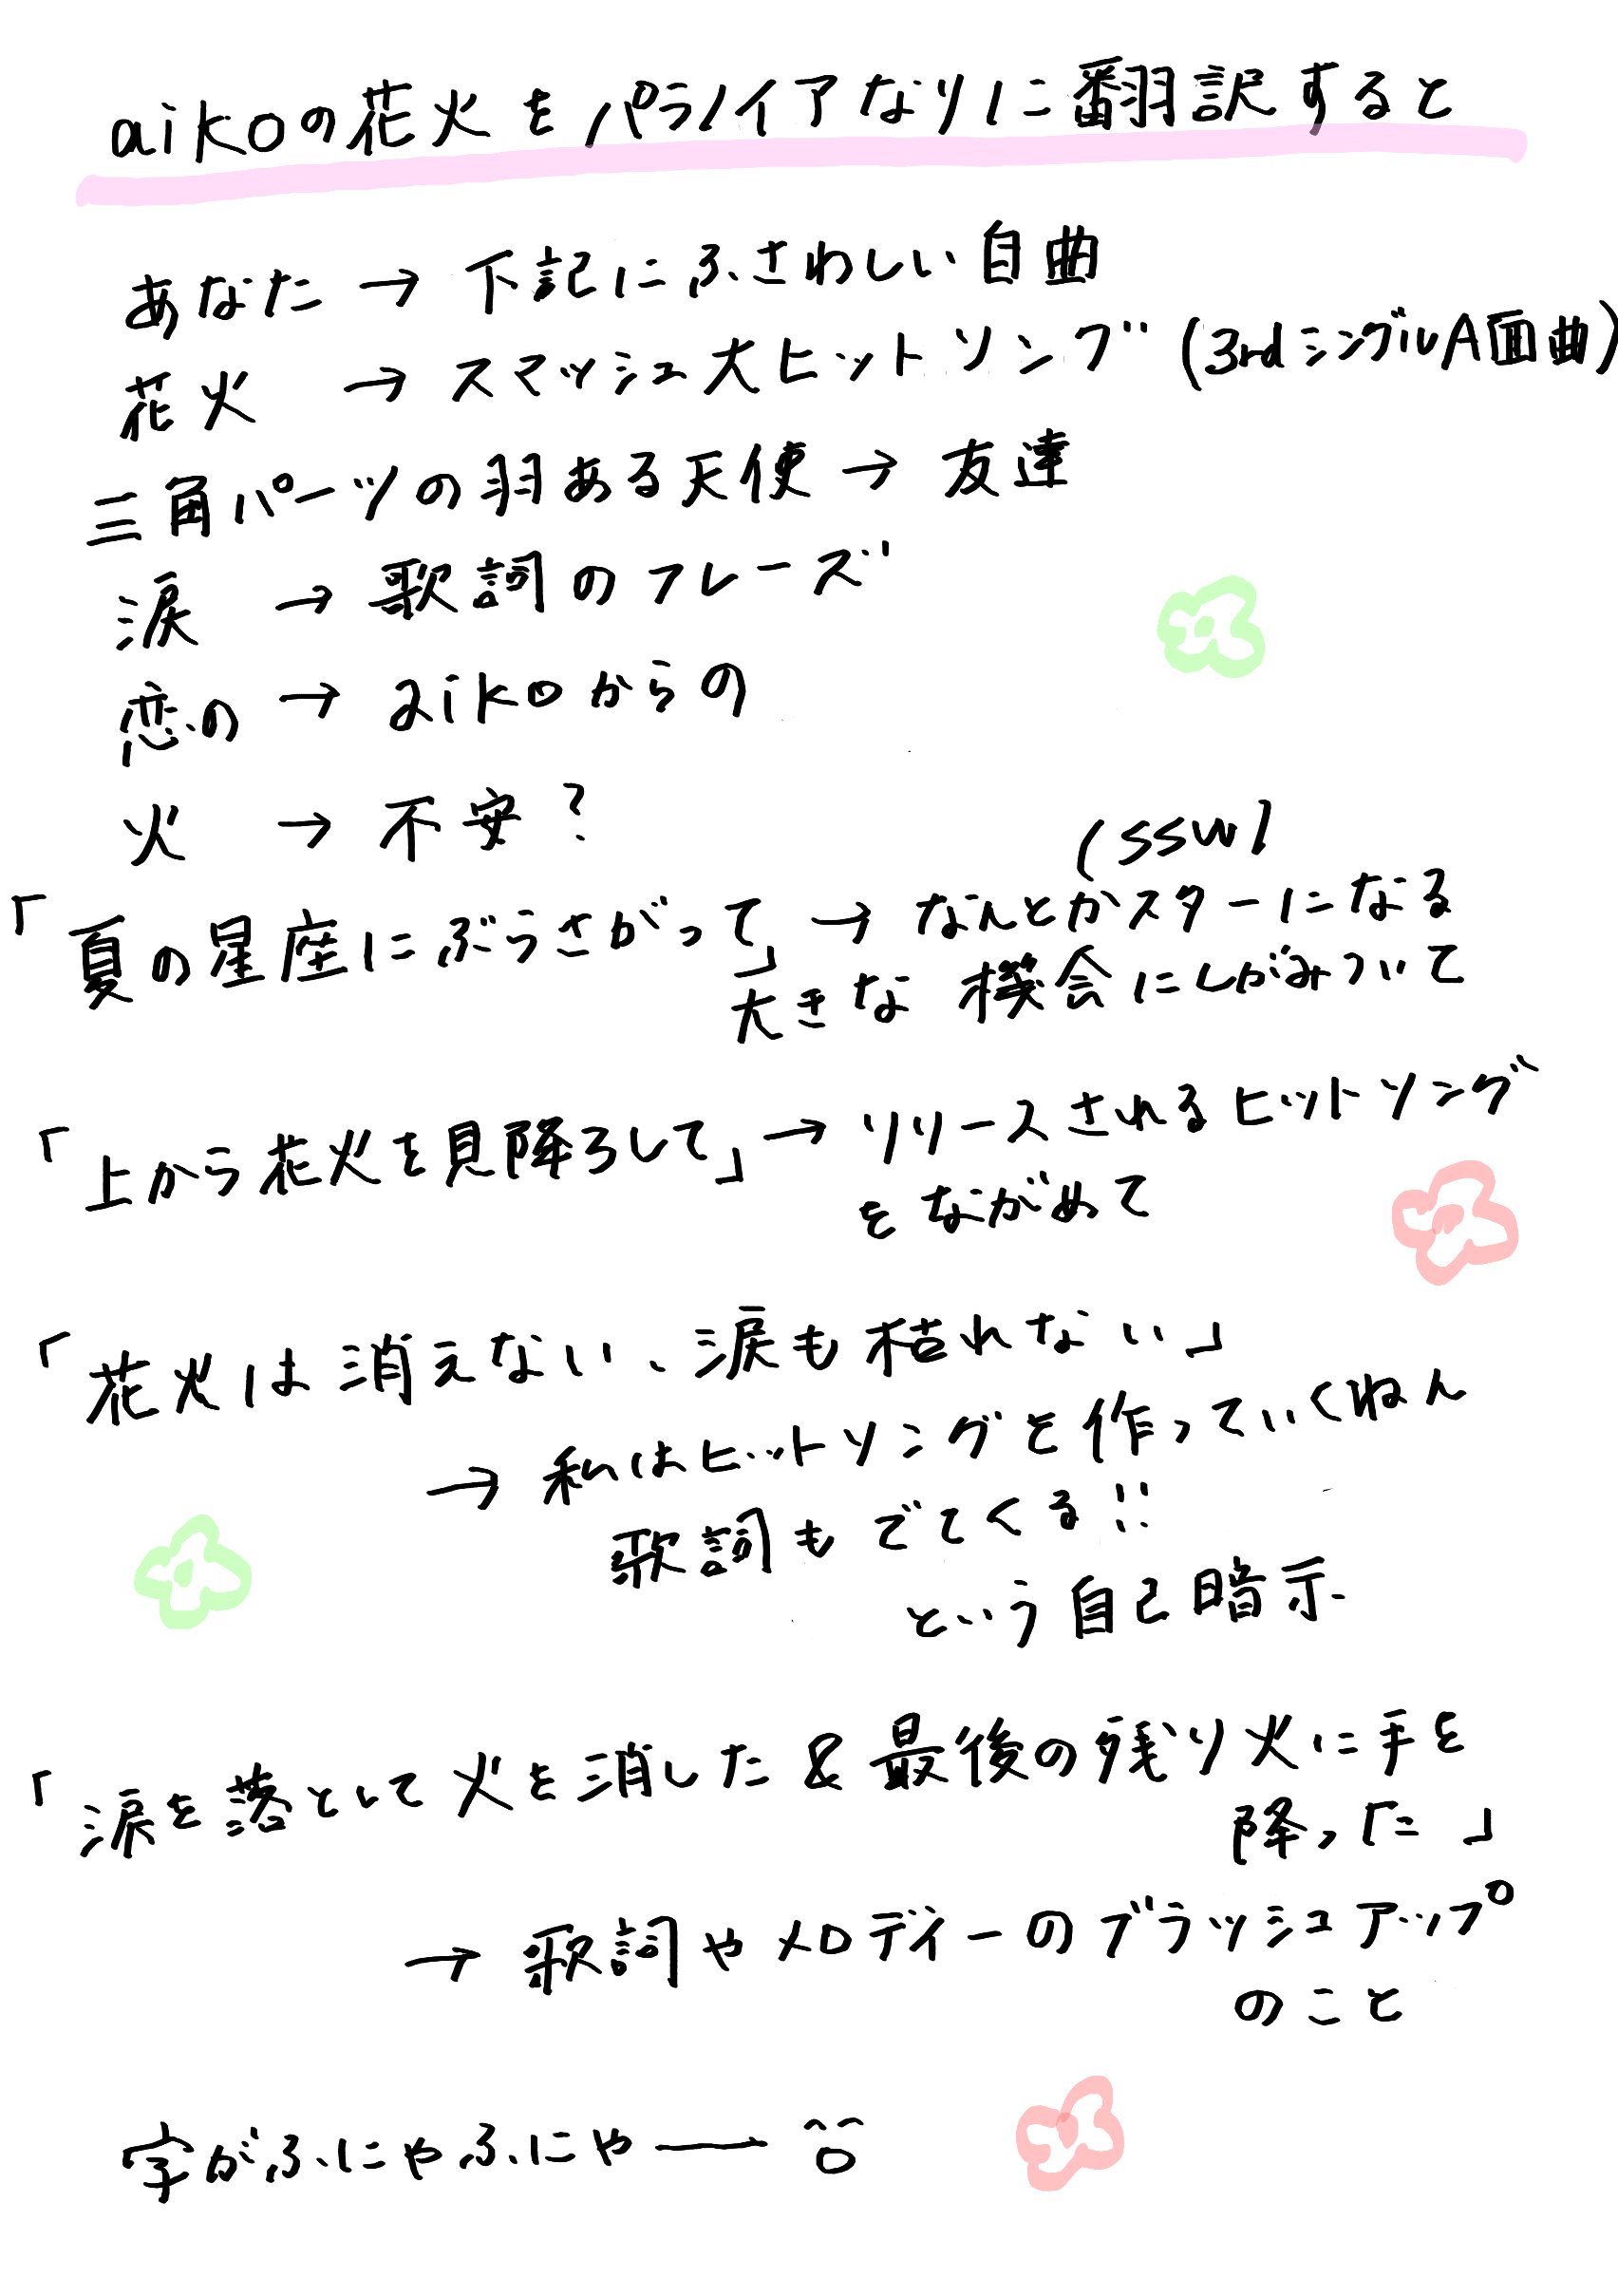 aikoの花火をパラノイアなりに翻訳すると
あなた→下記にふさわしい自曲
花火→スマッシュ大ヒットソング(3rdシングルA面曲)
三角パーツの羽ある天使→友達
涙→歌詞のフレーズ
恋の→aikoからの
火→不安?
(SSW)
「夏の星座にぶらさがって」→なんとかスターになる
大きな機会にしがみついて
「上から花火を見降ろして」→リリースされるヒットソング
をながめて
「花火は消えない、涙も枯れない」
→私はヒットソングを作っていくねん
歌詞もでてくる!!
という自己暗示
「涙を落として火を消した&最後の残り火に手を
降った」
→歌詞やメロディーのブラッシュアップ
のこと
字がふにゃふにゃー